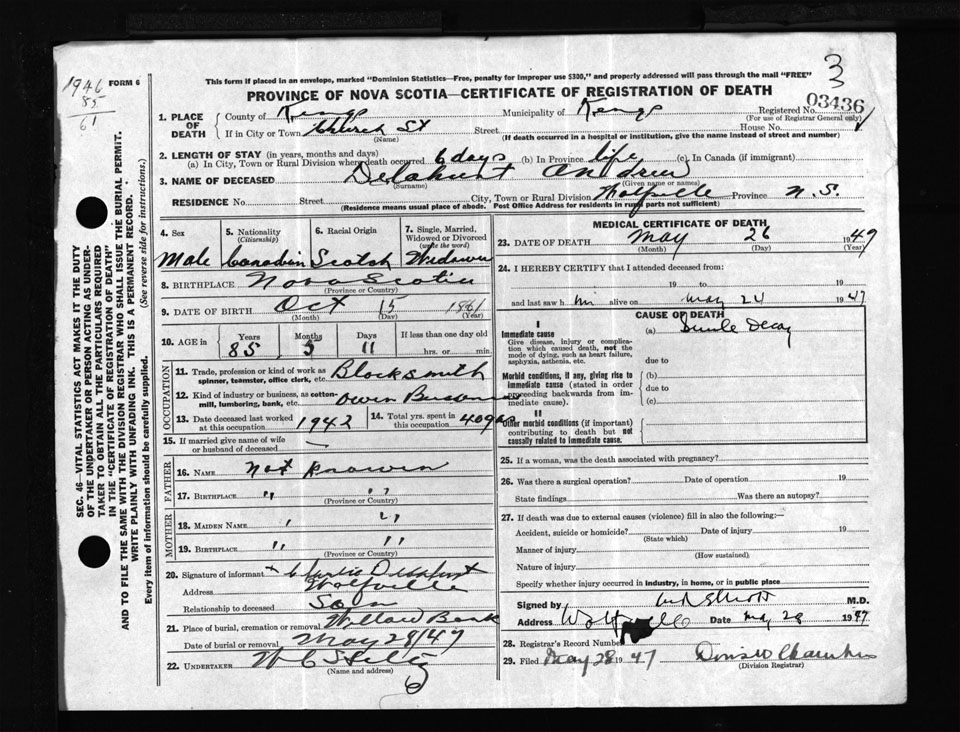 1946
85
61
FORM 6
3
This form if placed in an envelope, marked "Dominion Statistics—Free, penalty for improper use $300," and properly addressed will pass through the mail "FREE"
PROVINCE OF NOVA SCOTIA—CERTIFICATE OF REGISTRATION OF DEATH
Registered No. 03436
(For use of Registrar General only)
1. PLACE OF DEATH
County of Kings Municipality of Kings
If in City or Town Church St Street House No.
(Name) (If death occurred in a hospital or institution, give the name instead of street and number)
2. LENGTH OF STAY (in years, months and days)
(a) In City, Town or Rural Division where death occurred 6 days (b) In Province life (c) In Canada (if immigrant)
3. NAME OF DECEASED Delahunt Andrew
(Surname) (Given name or names)
RESIDENCE No. Street City, Town or Rural Division Wolfville Province N.S.
(Residence means usual place of abode. Post Office Address for residents in rural parts not sufficient)
4. Sex Male
5. Nationality (Citizenship) Canadian
6. Racial Origin Scotch
7. Single, Married, Widowed or Divorced (write the word) Widower
8. BIRTHPLACE Nova Scotia
(Province or Country)
9. DATE OF BIRTH Oct 15 1861
(Month) (Day) (Year)
10. AGE in Years Months Days If less than one day old
85 11 hrs. or min.
OCCUPATION
11. Trade, profession or kind of work as spinner, teamster, office clerk, etc. Blacksmith
12. Kind of industry or business, as cotton-mill, lumbering, bank, etc. Own Business
13. Date deceased last worked at this occupation 1942
14. Total yrs. spent in this occupation 40
15. If married give name of wife or husband of deceased —
FATHER
16. NAME Not known
17. BIRTHPLACE " "
(Province or Country)
MOTHER
18. MAIDEN NAME " "
19. BIRTHPLACE " "
(Province or Country)
20. Signature of informant Delahunt
Address Wolfville
Relationship to deceased Son
21. Place of burial, cremation or removal Willow Bank
Date of burial or removal May 28/47
22. UNDERTAKER W C
(Name and address)
MEDICAL CERTIFICATE OF DEATH
23. DATE OF DEATH May 26 1947
(Month) (Day) (Year)
24. I HEREBY CERTIFY that I attended deceased from:
19 to 19
and last saw h im alive on May 24 1947
CAUSE OF DEATH
I
Immediate cause (a) Senile Decay
Give disease, injury or complication which caused death, not the mode of dying, such as heart failure, asphyxia, asthenia, etc.
due to
Morbid conditions, if any, giving rise to immediate cause (stated in order proceeding backwards from immediate cause).
(b)
due to
(c)
II
Other morbid conditions (if important) contributing to death but not causally related to immediate cause.
25. If a woman, was the death associated with pregnancy?
26. Was there a surgical operation? Date of operation 19
State findings Was there an autopsy?
27. If death was due to external causes (violence) fill in also the following:—
Accident, suicide or homicide? Date of injury 19
(State which)
Manner of injury
(How sustained)
Nature of injury
Specify whether injury occurred in industry, in home, or in public place
Signed by M.D.
Address Wolfville Date May 28 1947
28. Registrar's Record Number
29. Filed May 28 1947
(Division Registrar)
SEC. 46—VITAL STATISTICS ACT MAKES IT THE DUTY
OF THE UNDERTAKER OR PERSON ACTING AS UNDER-
TAKER TO OBTAIN ALL THE PARTICULARS REQUIRED
IN THE "CERTIFICATE OF REGISTRATION OF DEATH"
AND TO FILE THE SAME WITH THE DIVISION REGISTRAR WHO SHALL ISSUE THE BURIAL PERMIT.
WRITE PLAINLY WITH UNFADING INK. THIS IS A PERMANENT RECORD.
Every item of information should be carefully supplied. (See reverse side for instructions.)